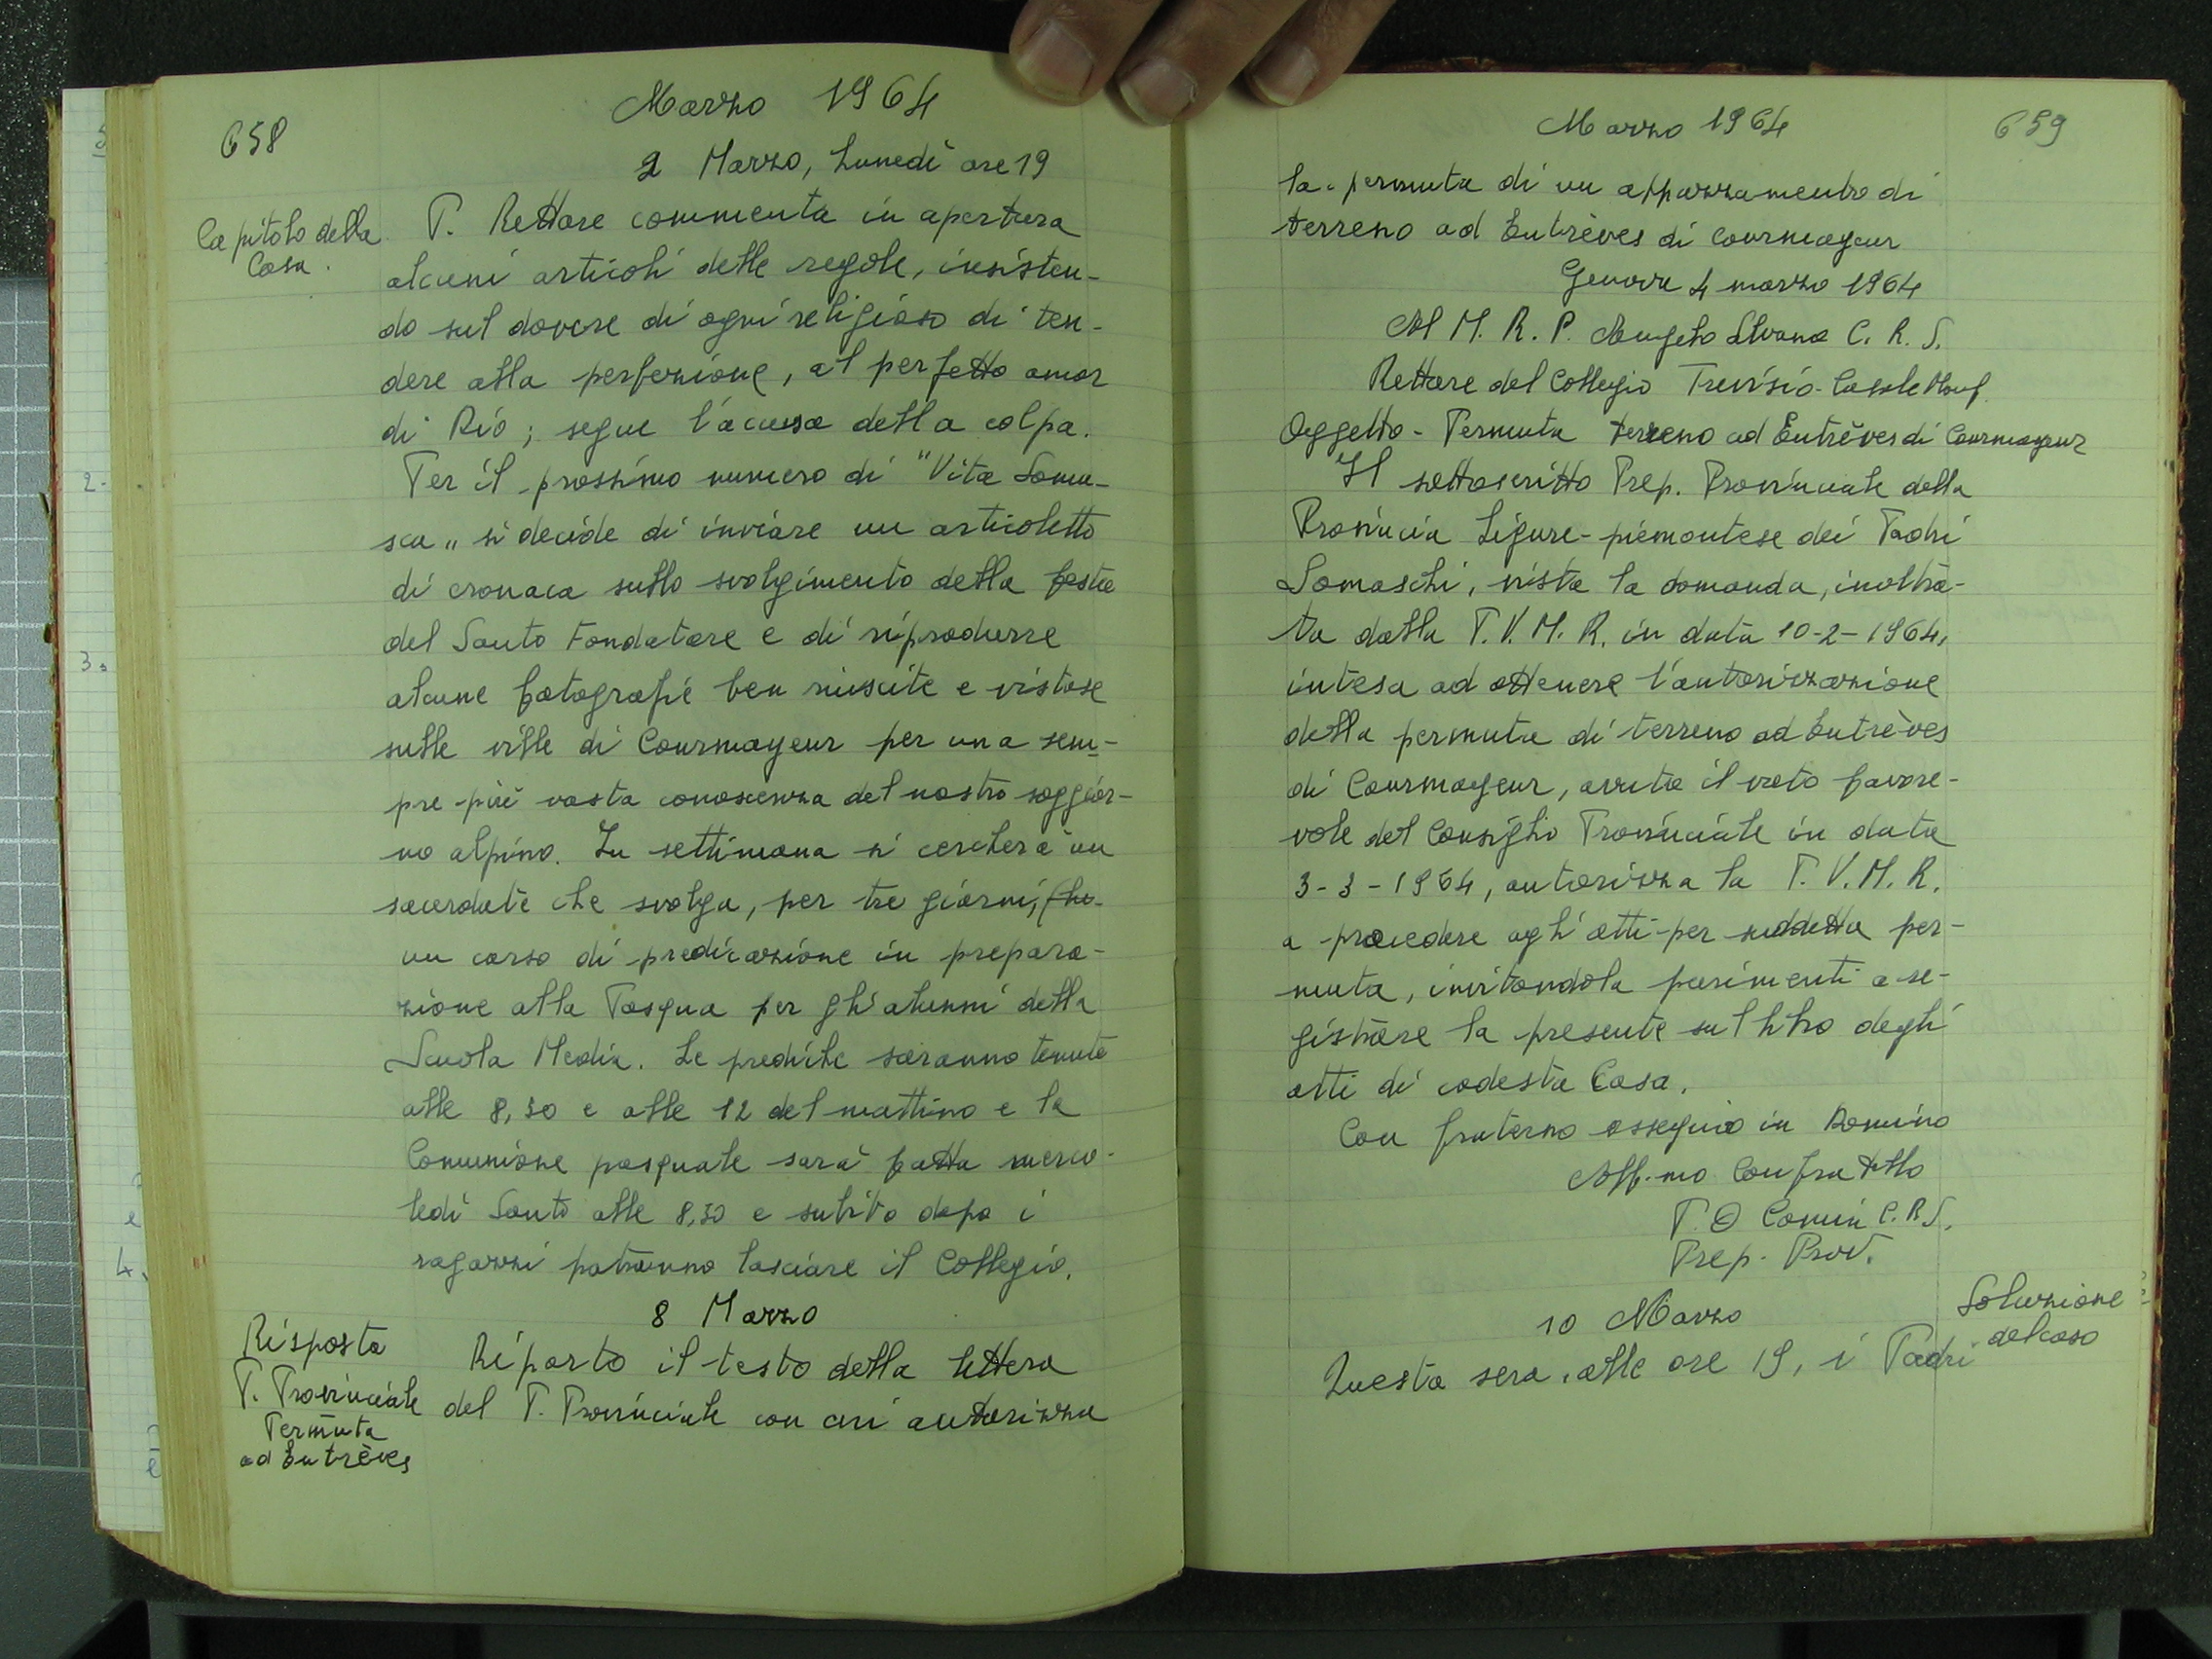 658
Marzo 1964
2 Marzo, Lunedì ore 19
Capitolo della
Casa.
P. Rettore commenta in apertura
alcuni articoli delle regole, insisten-
do sul dovere di ogni religioso di ten-
dere alla perfezione, al perfetto amor
di Dio; segue l'accusa della colpa.
Per il prossimo numero di "Vita Soma-
sca" si decide di inviare un articoletto
di cronaca sullo svolgimento della festa
del Santo Fondatore e di riprodurre
alcune fotografie ben riuscite e vistose
sulle ville di Courmayeur per una sem-
pre più vasta conoscenza del nostro soggior-
no alpino. In settimana si cercherà un
sacerdote che svolga, per tre giorni,
un corso di predicazione in prepara-
zione alla Pasqua per gli alunni della
Scuola Media. Le prediche saranno tenute
alle 8,30 e alle 12 del mattino e la
Comunione pasquale sarà fatta merco-
ledì Santo alle 8,30 e subito dopo i
ragazzi potranno lasciare il Collegio.
8 Marzo
Risposta
P. Provinciale
Permuta
ad Entrèves
Riporto il testo della lettera
del P. Provinciale con cui autorizza
Marzo 1964
659
la permuta di un appezzamento di
terreno ad Entrèves di Courmayeur
Genova 4 marzo 1964
Al M. R. P. Angelo Stvana C. R. S.
Rettore del Collegio Trevisio - Casale Monf.
Oggetto - Permuta terreno ad Entrèves di Courmayeur
Il sottoscritto Prep. Provinciale della
Provincia Ligure-piemontese dei Padri
Somaschi, vista la domanda, inoltra-
ta dalla P. V. M. R. in data 10-2-1964,
intesa ad ottenere l'autorizzazione
della permuta di terreno ad Entrèves
di Courmayeur, avuto il voto favore-
vole del Consiglio Provinciale in data
3-3-1964, autorizza la P. V. M. R.
a procedere agli atti per suddetta per-
muta, invitandola parimenti a re-
gistrare la presente sul libro degli
atti di codesta Casa.
Con fraterno ossequio in Domino
Aff.mo Confratello
P. O Comin C. R. S.
Prep. Prov.
10 Marzo
Soluzione
del caso
Questa sera, alle ore 19, i Padri